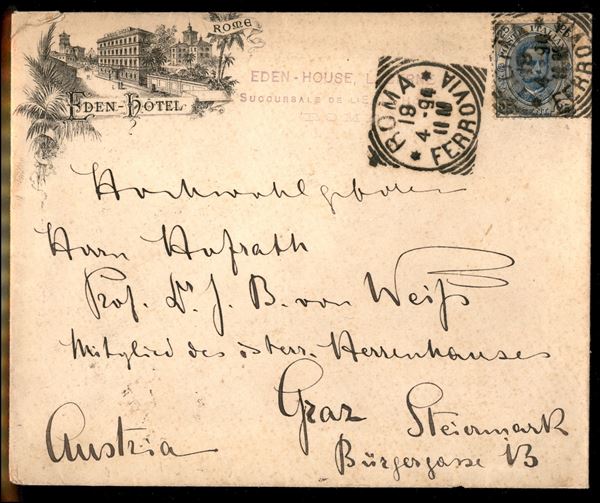 ROME
EDEN-HÔTEL
EDEN-HOUSE,
SUCCURSALE DE
ROMA
19
4-94
11 M
FERROVIA
FERROVIA
Hochwohlgeboren
Herrn Hofrath
Prof. Dr. J. B. von Weiß
Mitglied des österr. Herrenhauses
Graz Steiermark
Austria Bürgergasse 13